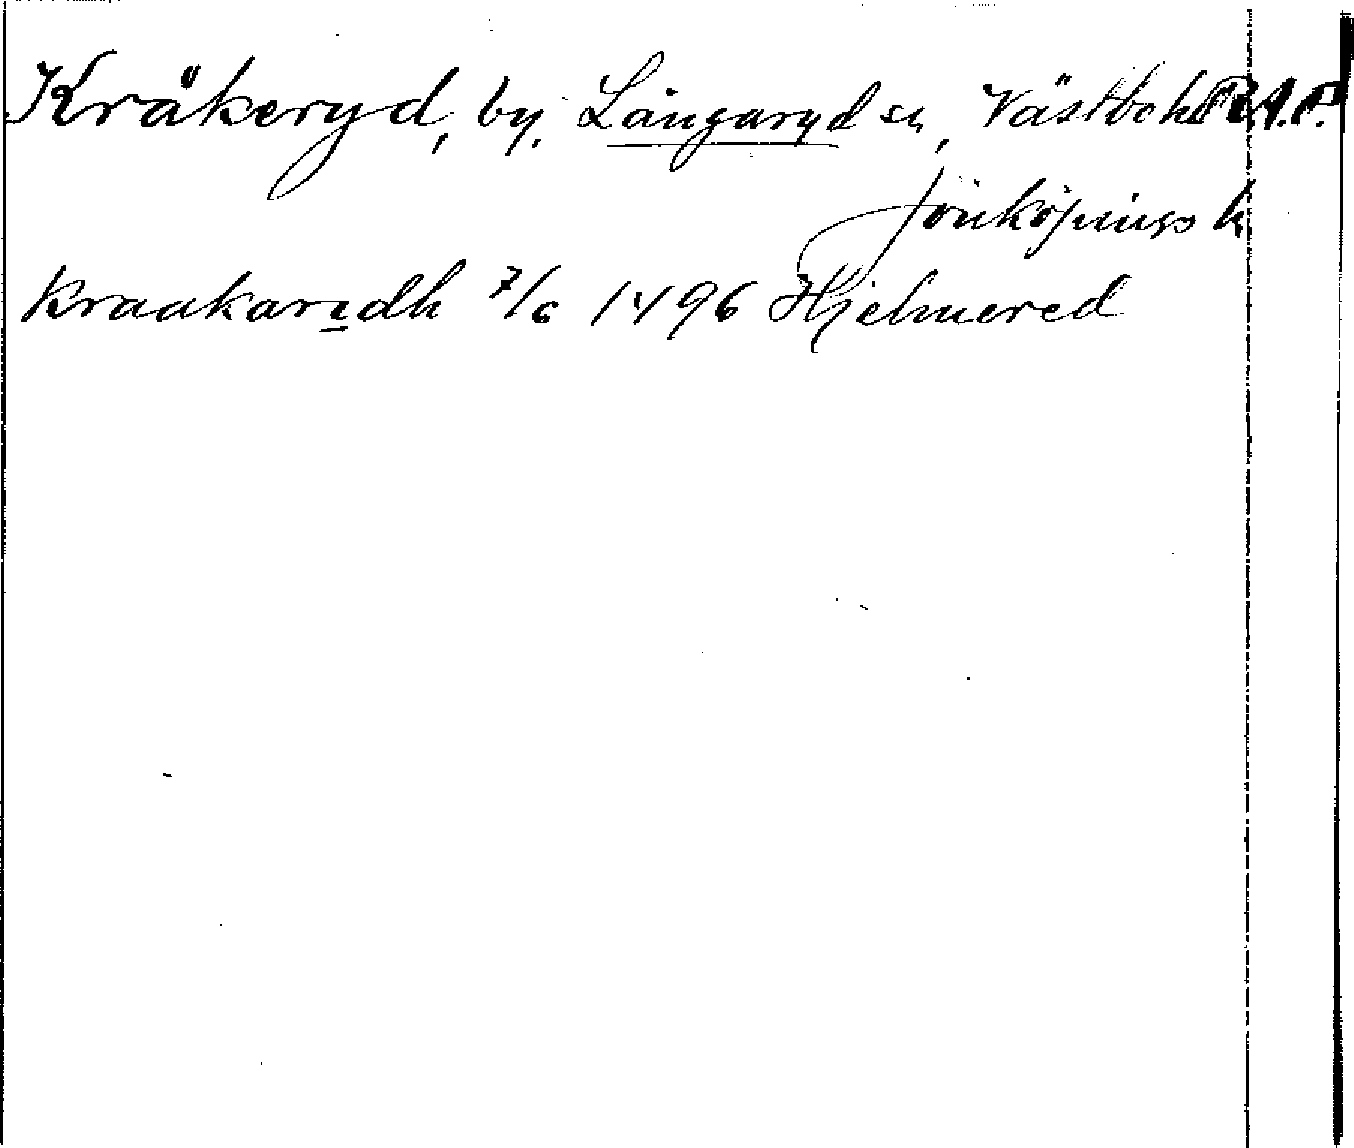 Kråkeryd, by, Långaryd sn, Västbo hd R.A.P.
Jönköpings l.
Kraakaredh 7/6 1496 Hjelmered